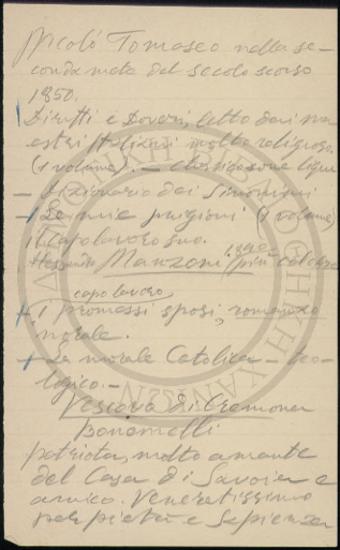 Nicolò Tomaseo nella se-
conda metà del secolo scorso
1850.
Diritti e Doveri, letto dai ma
estri Italiani molto religioso.
(1 volume). —
— Dizionario dei Sinonimi
— Le mie prigioni (1 volume)
il Capolavoro suo.
Alessandro Manzoni. più celebre
capo lavoro
— i promessi sposi, romanzo
morale.
— La morale Catolica — teo-
logico. —
Vescovo di Cremona
Bonomelli
patriota, molto amante
del Casa di Savoia e
amico. Veneratissimo
per pietà e Sapienza
ΔΗΜΟΤΙΚΗ ΒΙΒΛΙΟΘΗΚΗ ΧΑΝΙΩΝ